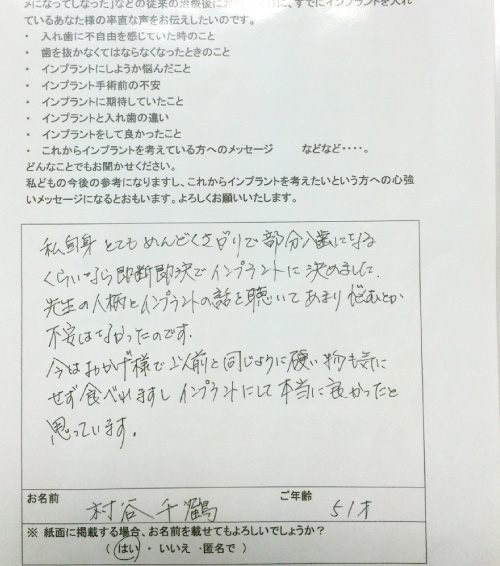 メになってしなった」などの従来の治療後に
ているあなた様の率直な声をお伝えしたいのです。
・ 入れ歯に不自由を感じていた時のこと
・ 歯を抜かなくてはならなくなったときのこと
・ インプラントにしようか悩んだこと
・ インプラント手術前の不安
・ インプラントに期待していたこと
・ インプラントと入れ歯の違い
・ インプラントをして良かったこと
・ これからインプラントを考えている方へのメッセージ などなど・・・・。
どんなことでもお聞かせください。
私どもの今後の参考になりますし、これからインプラントを考えたいという方への心強
いメッセージになるとおもいます。よろしくお願いいたします。
私自身 とてもめんどくさがりで部分入歯になる
くらいなら即断即決でインプラントに決めました。
先生の人柄とインプラントの話を聴いてあまり悩むとか
不安はなかったのです。
今はおかげ様で以前と同じように硬い物も気に
せず食べれますし インプラントにして本当に良かったと
思っています。
お名前 村谷 千鶴 ご年齢 51才
※ 紙面に掲載する場合、お名前を載せてもよろしいでしょうか?
( はい ・ いいえ ・匿名で )